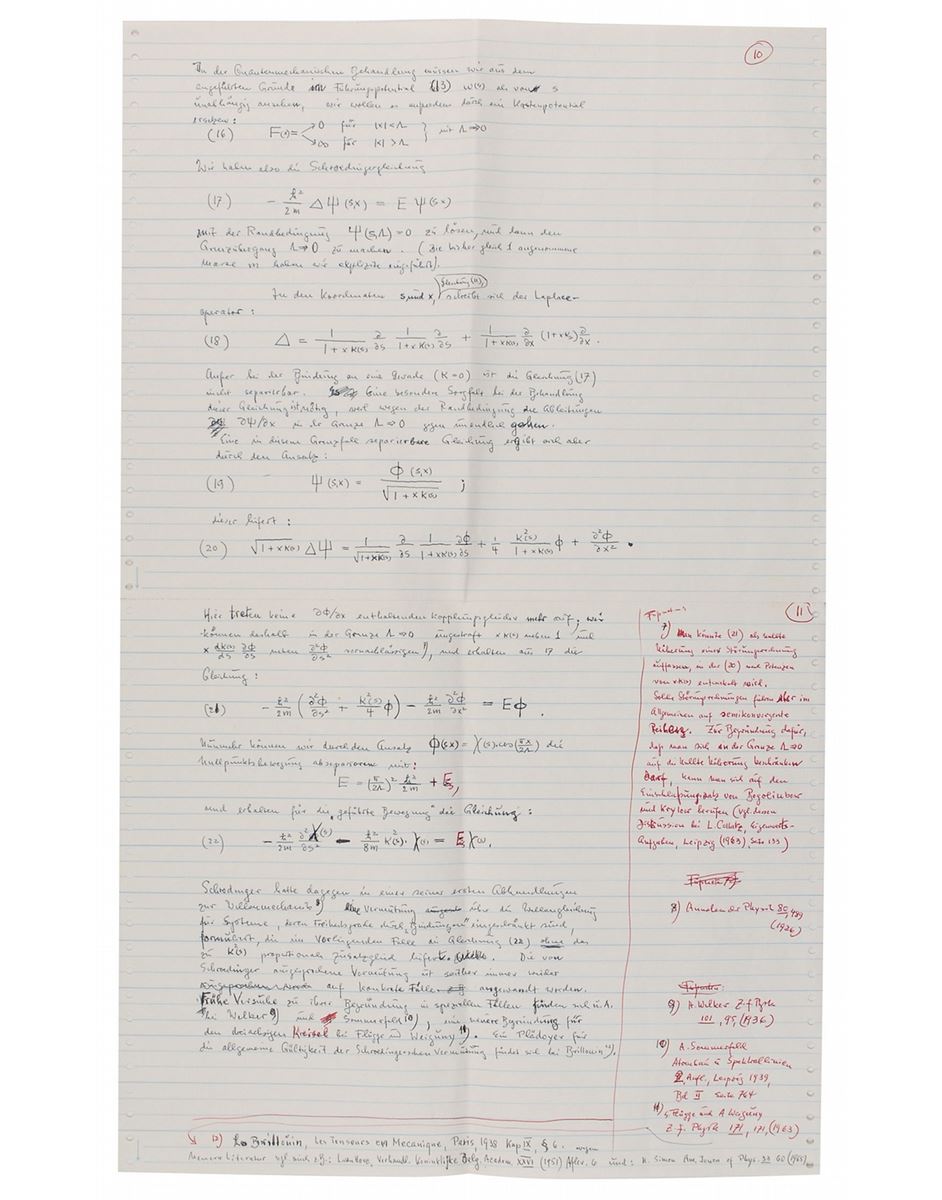 10
In der Quantenmechanischen Behandlung müssen wir aus dem
angeführten Grunde im Führungspotential (13) w(s) als von s
unabhängig ansehen, wir wollen es ausserdem durch ein Kastenpotential
ersetzen:
(16) F(x) = 0 für |x| < Λ
∞ für |x| > Λ } mit Λ → 0
Wir haben also die Schroedingergleichung
(17) - ħ²/2m Δ Ψ(s,x) = E Ψ(s,x)
mit der Randbedingung Ψ(s,Λ) = 0 zu lösen, und dann den
Grenzübergang Λ → 0 zu machen. (Die bisher gleich 1 angenommene
Masse m haben wir explizite eingeführt).
Gleichung (11),
In den Koordinaten s und x, schreibt sich der Laplace-
operator:
(18) Δ = 1/(1+xK(s)) ∂/∂s 1/(1+xK(s)) ∂/∂s + 1/(1+xK(s)) ∂/∂x (1+xK(s)) ∂/∂x .
Außer bei der Bindung an eine Gerade (K=0) ist die Gleichung (17)
nicht separierbar. Eine besondere Sorgfalt bei der Behandlung
dieser Gleichung ist nötig, weil wegen der Randbedingung die Ableitungen
∂Ψ/∂x in der Grenze Λ → 0 gegen unendlich gehen.
Eine in diesem Grenzfall separierbare Gleichung ergibt sich aber
durch den Ansatz:
(19) Ψ(s,x) = Φ(s,x)/√(1+xK(s)) ;
dieser liefert:
(20) √(1+xK(s)) ΔΨ = 1/√(1+xK(s)) ∂/∂s 1/(1+xK(s)) ∂Φ/∂s + 1/4 K²(s)/(1+xK(s)) Φ + ∂²Φ/∂x² .
11
Hier treten keine ∂Φ/∂x enthaltenden Kopplungsglieder mehr auf; wir
können deshalb in der Grenze Λ → 0 ungestraft xK(s) neben 1 und
x dK(s)/ds ∂Φ/∂s neben ∂²Φ/∂s² vernachlässigen 7), und erhalten aus 17 die
Gleichung:
(21) - ħ²/2m (∂²Φ/∂s² + K²(s)/4 Φ) - ħ²/2m ∂²Φ/∂x² = EΦ .
Nunmehr können wir durch den Ansatz Φ(s,x) = χ(s) cos(πx/2Λ) die
Nullpunktsbewegung abseparieren mit:
E = (π/2Λ)² ħ²/2m + Es,
und erhalten für die „geführte Bewegung" die Gleichung:
(22) - ħ²/2m ∂²χ(s)/∂s² - ħ²/8m K²(s)· χ(s) = Es χ(s).
Schrödinger hatte dagegen in einer seiner ersten Abhandlungen
zur Wellenmechanik 8) eine Vermutung über die Wellengleichung
für Systeme, deren Freiheitsgrade durch „Bindungen" eingeschränkt sind,
formuliert, die im vorliegenden Falle die Gleichung (22) ohne das
zu K²(s) proportionale Zusatzglied liefert. Die von
Schroedinger ausgesprochene Vermutung ist seither immer wieder
auf konkrete Fälle angewandt worden.
Frühe Versuche zu ihrer Begründung in speziellen Fällen finden sich u.A.
bei Welker 9) und Sommerfeld 10), eine neuere Begründung für
den dreiachsigen Kreisel bei Flügge und Weiguny 11). Ein Plädoyer für
die allgemeine Gültigkeit der Schroedingerschen Vermutung findet sich bei Brillouin 12).
7) Man könnte (21) als nullte
Näherung einer Störungsrechnung
auffassen, in der (20) nach Potenzen
von xK(s) entwickelt wird.
Solche Störungsrechnungen führen aber im
Allgemeinen auf semikonvergente
Reihen. Zur Begründung dafür,
daß man sich in der Grenze Λ → 0
auf die nullte Näherung beschränken
darf, kann man sich auf den
Einschließungssatz von Bogoliubow
und Krylow berufen (vgl. dessen
Diskussion bei L. Collatz, Eigenwerts-
Aufgaben, Leipzig (1963) Seite 133)
8) Annalen der Physik 80, 489
(1926)
9) H. Welker Z. f. Phys.
101, 95, (1936)
10) A. Sommerfeld
Atombau u Spektrallinien
2. Aufl., Leipzig 1939,
Bd II Seite 764
11) S. Flügge und A Weiguny
Z. f. Physik 171, 171, (1963)
12) L. Brillouin, Les Tenseurs en Mecanique, Paris 1938 Kap IX, § 6.
Neuere Literatur vgl. Verhandl. Koninklijke Belg. Academ. XXVI (1951) und: